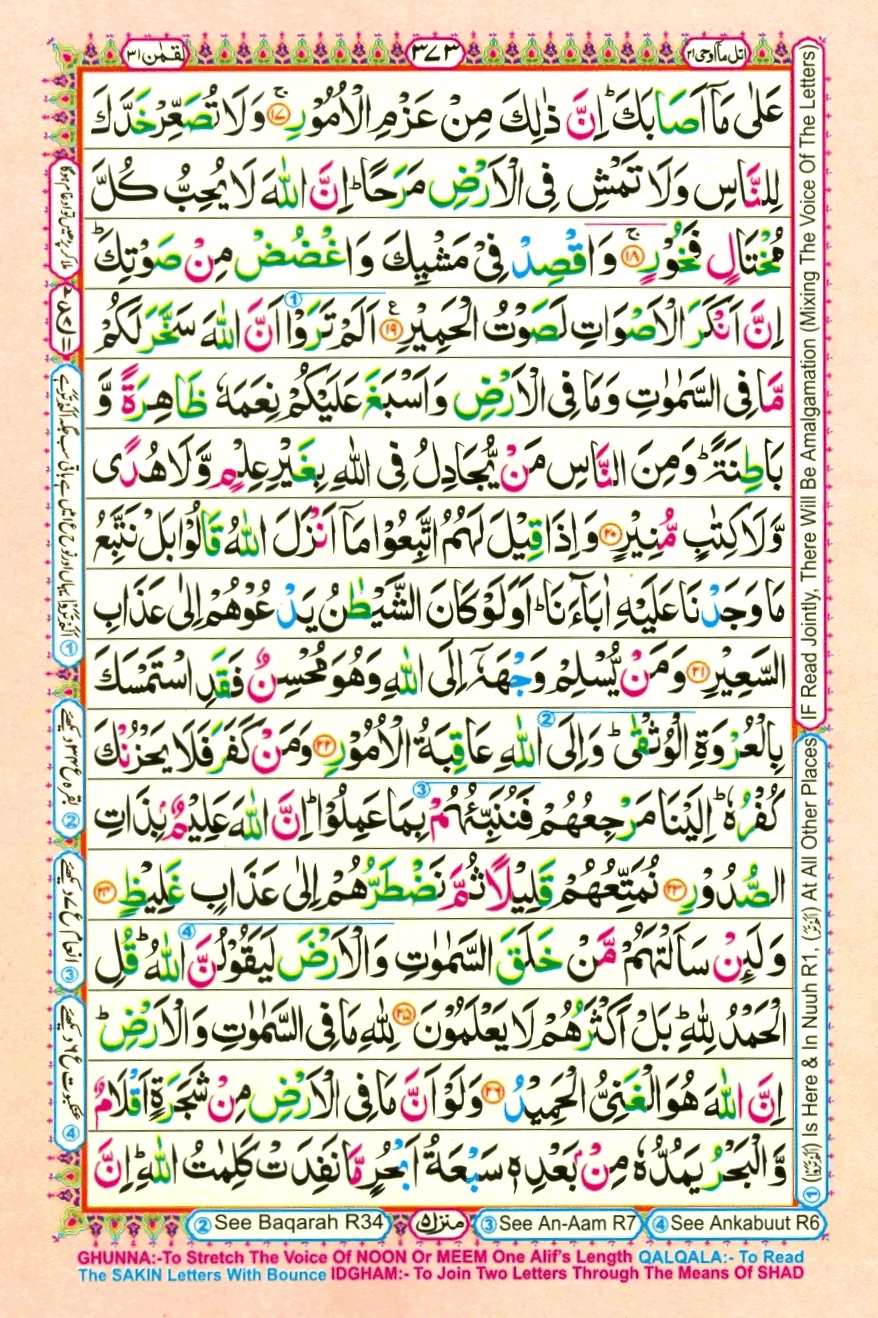 لقمٰن ٣١
٣٧٣
اتل مآ اوحی ٢١
عَلٰى مَاۤ اَصَابَكَ ؕ اِنَّ ذٰلِكَ مِنْ عَزْمِ الْاُمُوْرِ ۚ ﴿۱۷﴾ وَلَا تُصَعِّرْ خَدَّكَ
لِلنَّاسِ وَلَا تَمْشِ فِى الْاَرْضِ مَرَحًا ؕ اِنَّ اللّٰهَ لَا يُحِبُّ كُلَّ
مُخْتَالٍ فَخُوْرٍ ۚ ﴿۱۸﴾ وَاقْصِدْ فِىْ مَشْيِكَ وَاغْضُضْ مِنْ صَوْتِكَ ؕ
اِنَّ اَنْكَرَ الْاَصْوَاتِ لَصَوْتُ الْحَمِيْرِ ﴿۱۹﴾ ع ① اَلَمْ تَرَوْا اَنَّ اللّٰهَ سَخَّرَ لَكُمْ
مَّا فِى السَّمٰوٰتِ وَمَا فِى الْاَرْضِ وَاَسْبَغَ عَلَيْكُمْ نِعَمَهٗ ظَاهِرَةً وَّ
بَاطِنَةً ؕ وَمِنَ النَّاسِ مَنْ يُّجَادِلُ فِى اللّٰهِ بِغَيْرِ عِلْمٍ وَّلَا هُدًى
وَّلَا كِتٰبٍ مُّنِيْرٍ ﴿۲۰﴾ وَاِذَا قِيْلَ لَهُمُ اتَّبِعُوْا مَاۤ اَنْزَلَ اللّٰهُ قَالُوْا بَلْ نَتَّبِعُ
مَا وَجَدْنَا عَلَيْهِ اٰبَآءَنَا ؕ اَوَلَوْ كَانَ الشَّيْطٰنُ يَدْعُوْهُمْ اِلٰى عَذَابِ
السَّعِيْرِ ﴿۲۱﴾ وَمَنْ يُّسْلِمْ وَجْهَهٗۤ اِلَى اللّٰهِ وَهُوَ مُحْسِنٌ فَقَدِ اسْتَمْسَكَ
بِالْعُرْوَةِ الْوُثْقٰى ؕ وَاِلَى اللّٰهِ ② عَاقِبَةُ الْاُمُوْرِ ﴿۲۲﴾ وَمَنْ كَفَرَ فَلَا يَحْزُنْكَ
كُفْرُهٗ ؕ اِلَيْنَا مَرْجِعُهُمْ فَنُنَبِّئُهُمْ ③ بِمَا عَمِلُوْا ؕ اِنَّ اللّٰهَ عَلِيْمٌۢ بِذَاتِ
الصُّدُوْرِ ﴿۲۳﴾ نُمَتِّعُهُمْ قَلِيْلًا ثُمَّ نَضْطَرُّهُمْ اِلٰى عَذَابٍ غَلِيْظٍ ﴿۲۴﴾
وَلَئِنْ سَاَلْتَهُمْ مَّنْ خَلَقَ السَّمٰوٰتِ وَالْاَرْضَ لَيَقُوْلُنَّ ④ اللّٰهُ ؕ قُلِ
الْحَمْدُ لِلّٰهِ ؕ بَلْ اَكْثَرُهُمْ لَا يَعْلَمُوْنَ ﴿۲۵﴾ لِلّٰهِ مَا فِى السَّمٰوٰتِ وَالْاَرْضِ ؕ
اِنَّ اللّٰهَ هُوَ الْغَنِىُّ الْحَمِيْدُ ﴿۲۶﴾ وَلَوْ اَنَّ مَا فِى الْاَرْضِ مِنْ شَجَرَةٍ اَقْلَامٌ
وَّالْبَحْرُ يَمُدُّهٗ مِنْۢ بَعْدِهٖ سَبْعَةُ اَبْحُرٍ مَّا نَفِدَتْ كَلِمٰتُ اللّٰهِ ؕ اِنَّ
IF Read Jointly, There Will Be Amalgamation (Mixing The Voice Of The Letters)
① (اَلَمْ تَرَوْا) Is Here & In Nuuh R1, (اَلَمْ تَرَ) At All Other Places
② بقرہ ع ۳۴ دیکھئے
③ انعام ع ۷ دیکھئے
④ عنکبوت ع ۶ دیکھئے
② See Baqarah R34
منزل ۵
③ See An-Aam R7
④ See Ankabuut R6
GHUNNA:-To Stretch The Voice Of NOON Or MEEM One Alif's Length QALQALA:- To Read
The SAKIN Letters With Bounce IDGHAM:- To Join Two Letters Through The Means Of SHAD